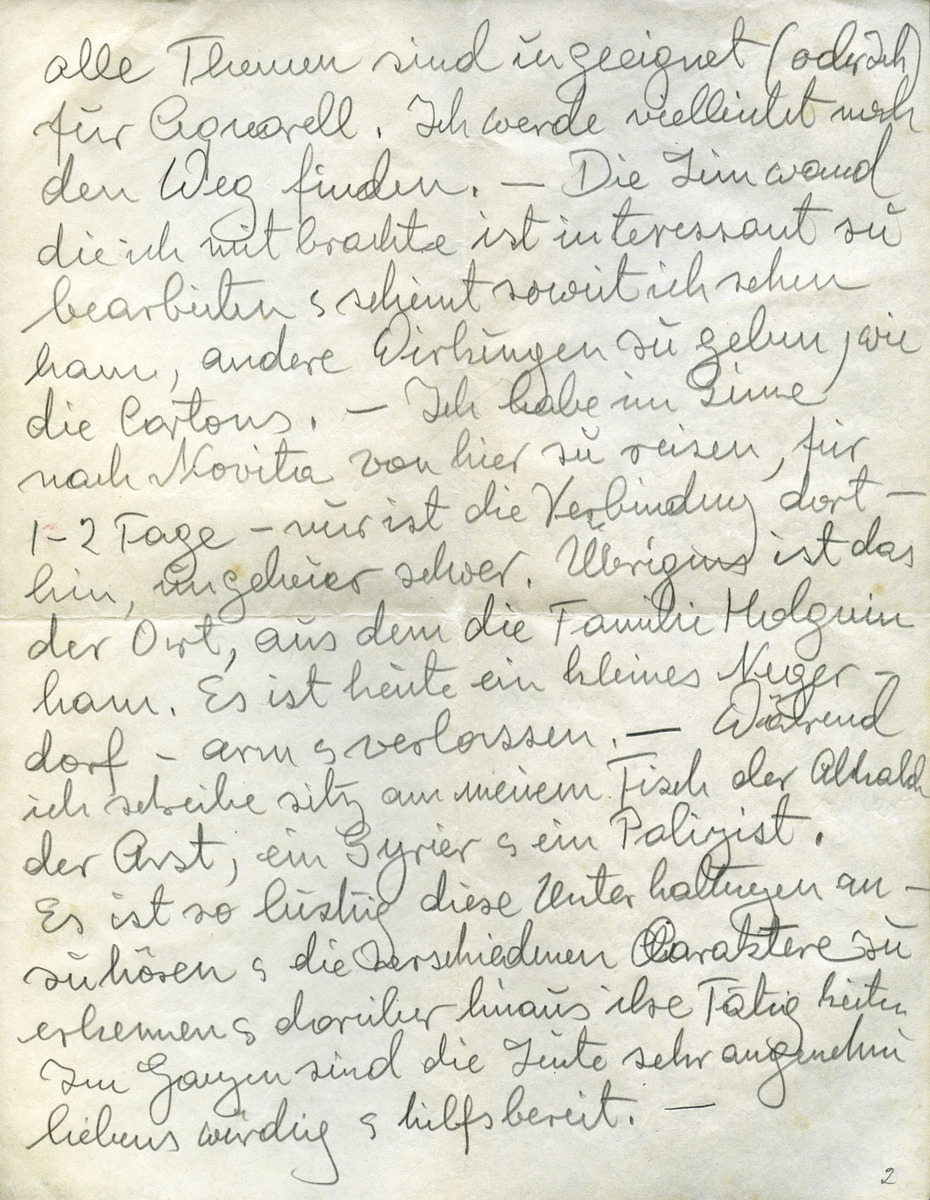 alle Themen sind ungeeignet (oder ich)
für Aquarell. Ich werde vielleicht noch
den Weg finden. – Die Leinwand
die ich mit brachte ist interessant zu
bearbeiten & scheint soweit ich sehen
kann, andere Wirkungen zu geben, wie
die Cartons. – Ich habe im Sinne
nach Novita von hier zu reisen, für
1-2 Tage – nur ist die Verbindung dort-
hin, ungeheuer schwer. Übrigens ist das
der Ort, aus dem die Familie Holguin
kam. Es ist heute ein kleines Neger-
dorf – arm & verlassen. – Während
ich schreibe sitz an meinem Tisch der Alkalde
der Arzt, ein Syrier & ein Polizist.
Es ist so lustig diese Unterhaltungen an-
zuhören & die verschiedenen Caraktere zu
erkennen & darüber hinaus ihre Tätigkeiten
Im Ganzen sind die Leute sehr angenehm
liebenswürdig & hilfsbereit. –
2